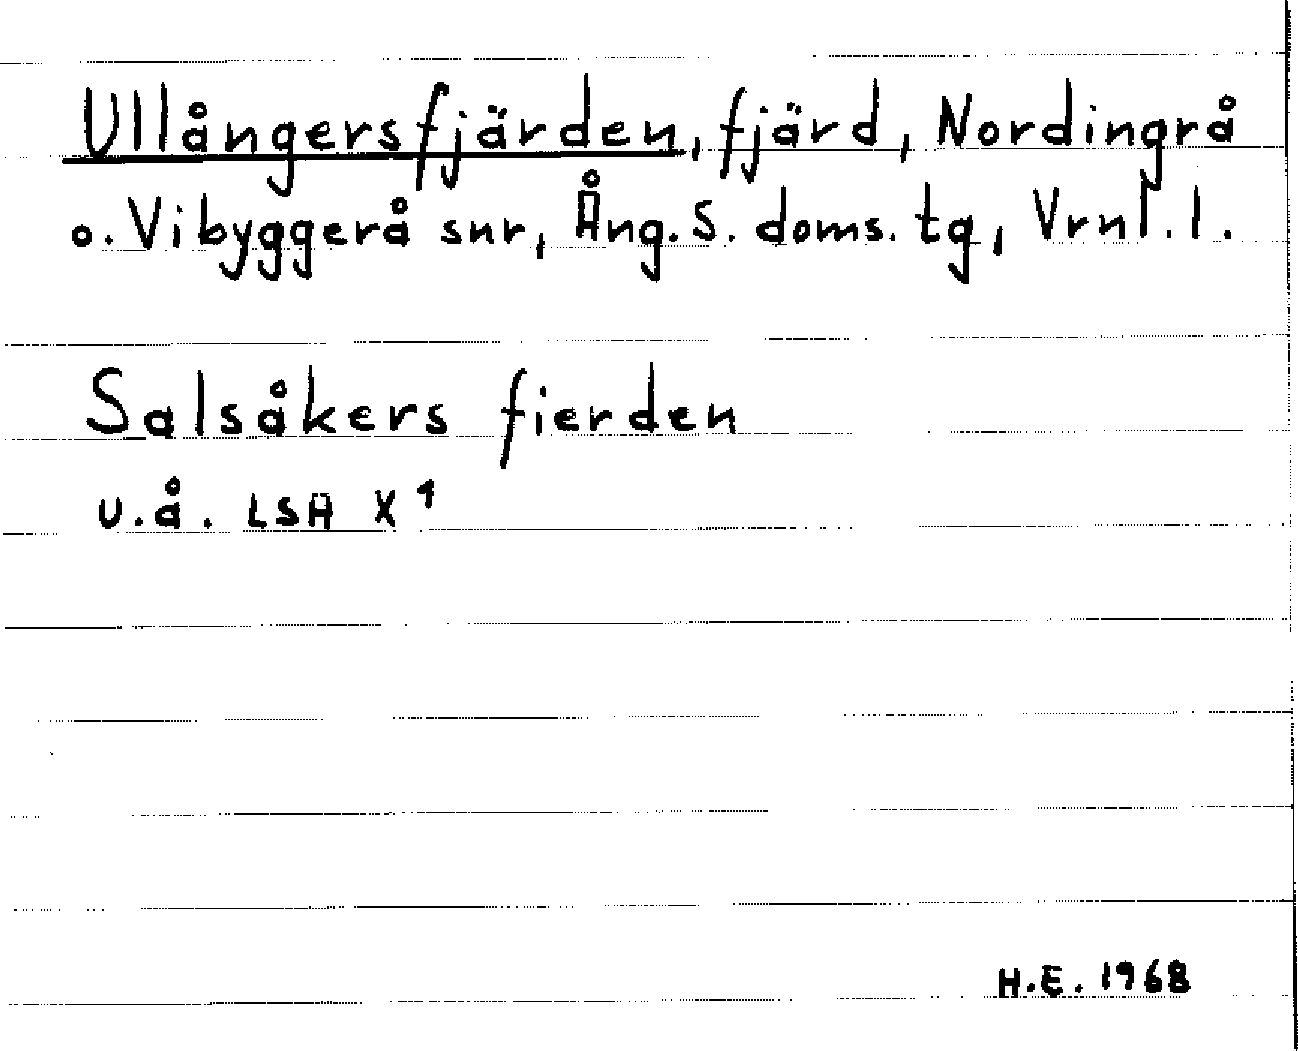 Ullångersfjärden, fjärd, Nordingrå
o. Vibyggerå snr, Ång. S. doms. tg, Vrnl. l.
Salsåkers fierden
u.å. LSA X 1
H.E. 1968